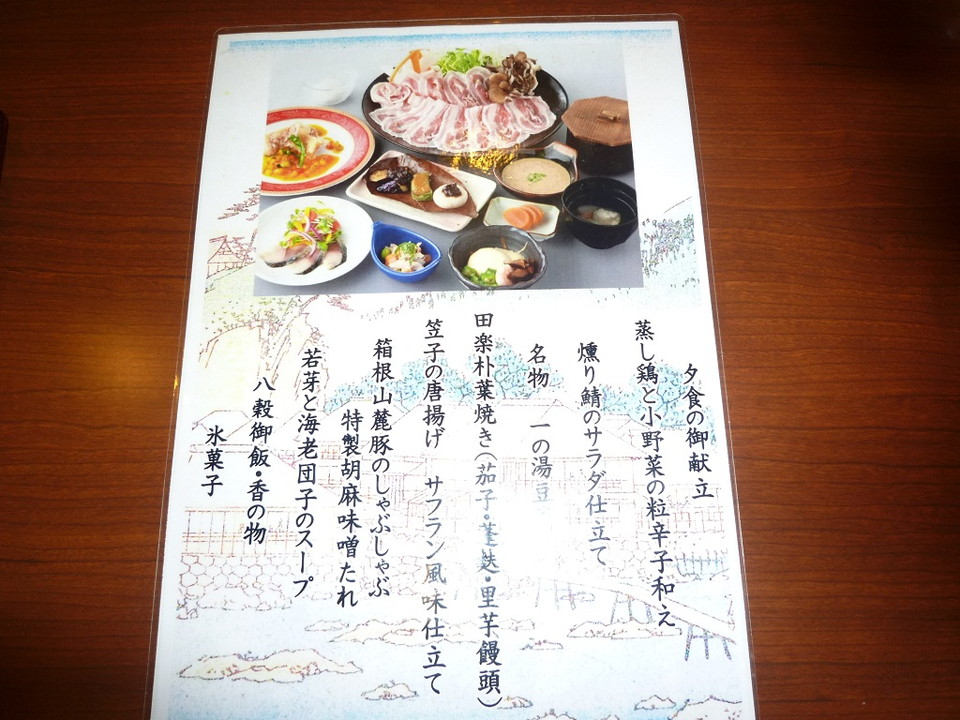 夕食の御献立
蒸し鶏と小野菜の粒辛子和え
燻り鯖のサラダ仕立て
名物 一の湯豆
田楽朴葉焼き(茄子・蓬麩・里芋饅頭)
笠子の唐揚げ サフラン風味仕立て
箱根山麓豚のしゃぶしゃぶ
特製胡麻味噌たれ
若芽と海老団子のスープ
八穀御飯・香の物
氷菓子